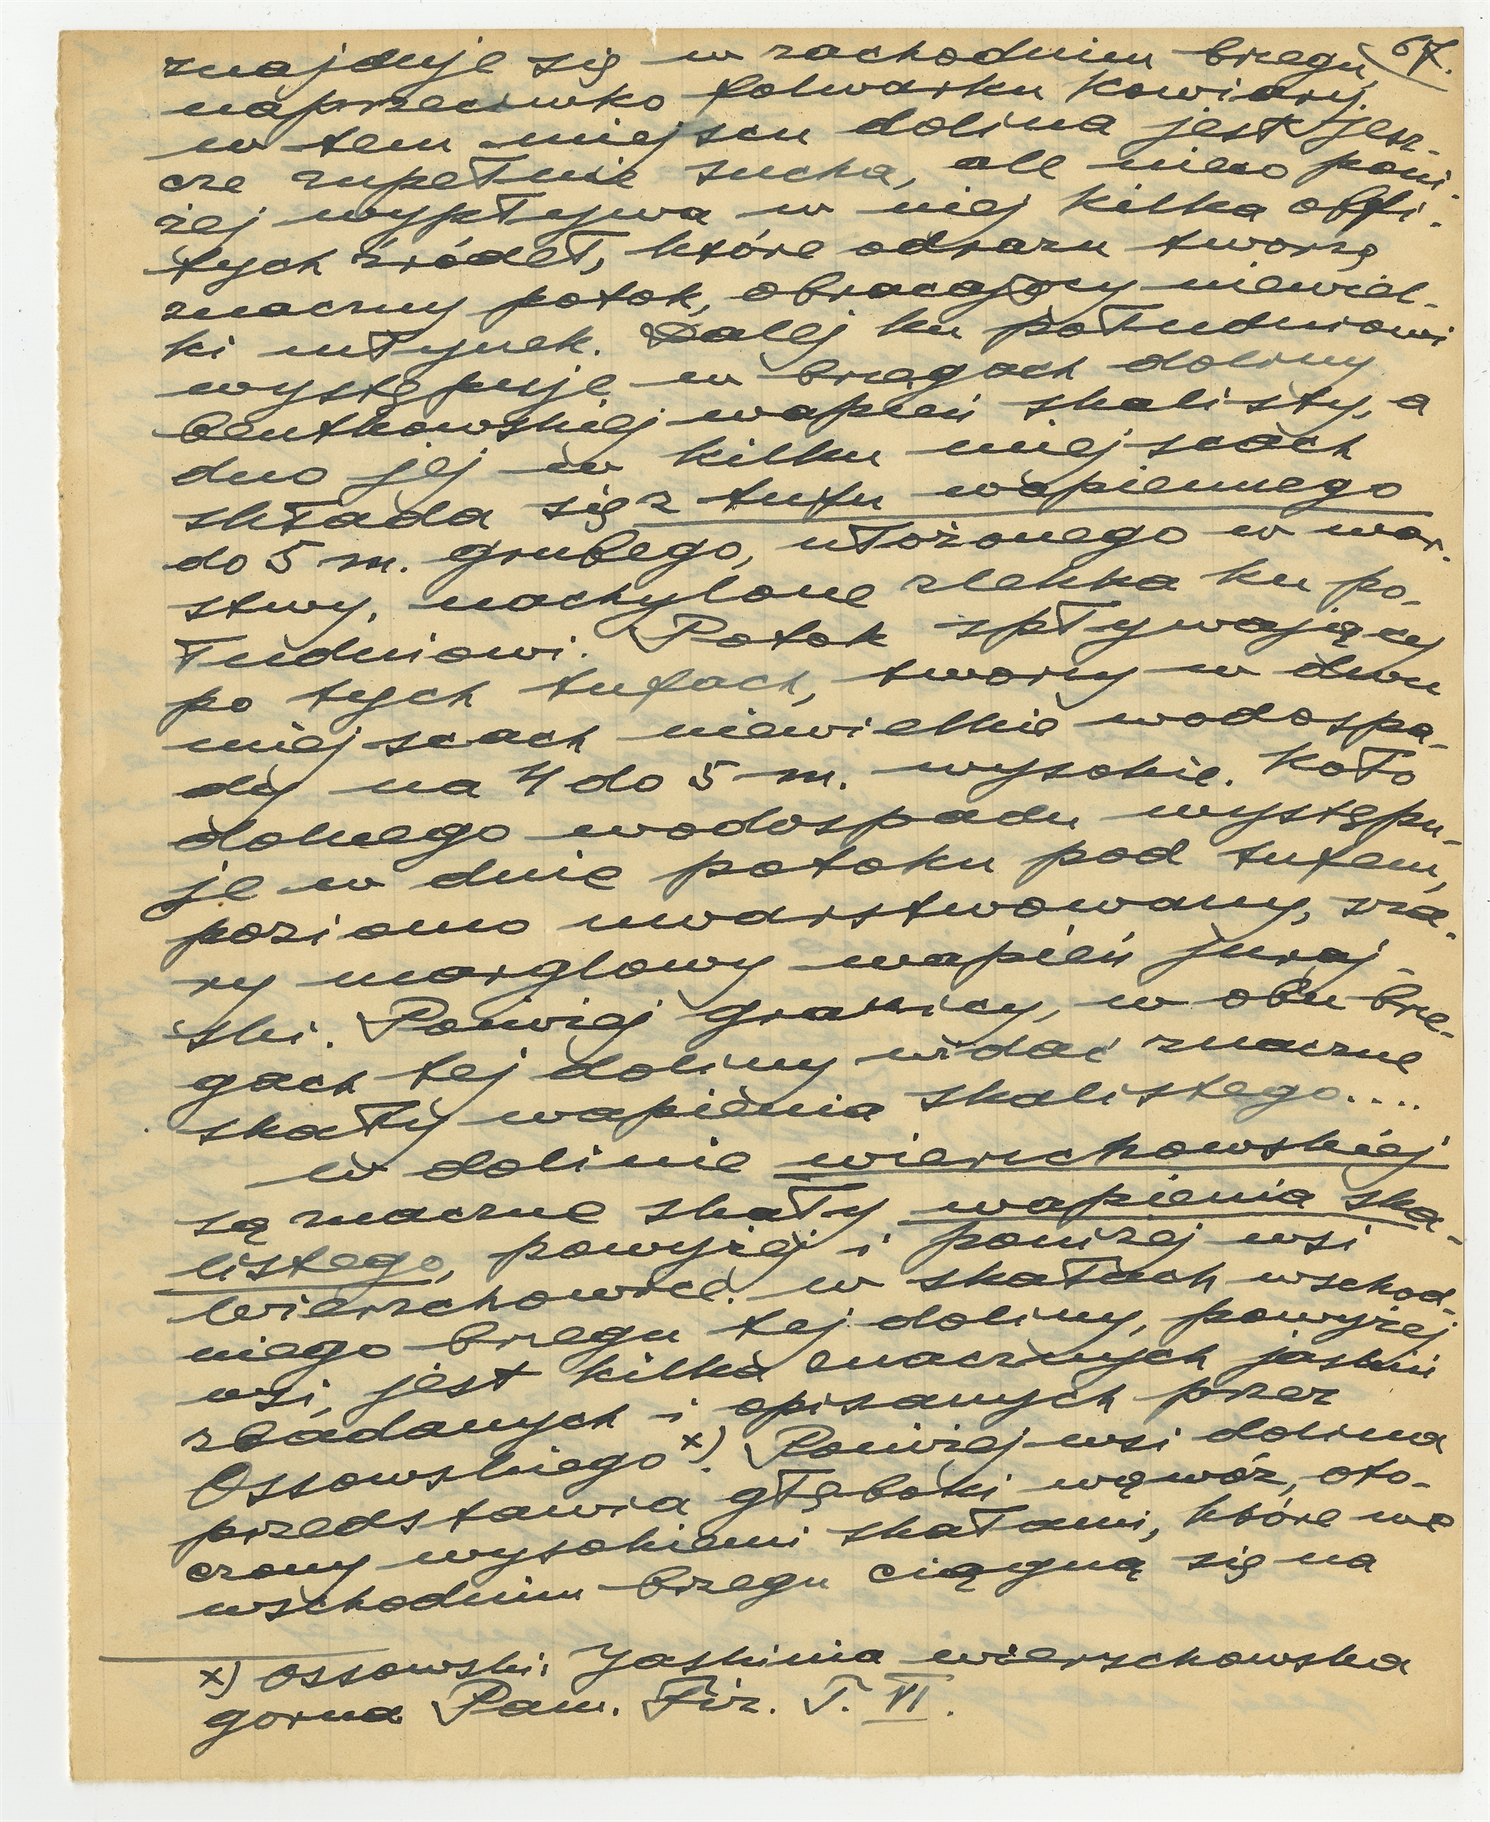 67.
znajduje się w zachodnim brzegu,
naprzeciwko folwarku Kowiary.
w tem miejscu dolina jest jesz-
cze zupełnie sucha, ale nieco poni-
żej wypływa w niej kilka obfi-
tych źródeł, które odrazu tworzą
znaczny potok, obracający niewiel-
ki młynek. Dalej ku południowi
występuje w brzegach doliny
bentkowskiej wapień skalisty, a
dno jej w kilku miejscach
składa się z tufu wapiennego
do 5 m. grubego, ułożonego w war-
stwy, nachylone zlekka ku po-
łudniowi. Potok spływający
po tych tufach, tworzy w dwu
miejscach niewielkie wodospa-
dy na 4 do 5 m. wysokie. Koło
dolnego wodospadu występu-
je w dnie potoku pod tufem,
poziomo uwarstwowany, sza-
ry marglowy wapień juraj-
ski. Poniżej granicy, w obu brze-
gach tej doliny widać znaczne
skały wapienia skalistego....
w dolinie wierzchowskiej
są znaczne skały wapienia ska-
listego, powyżej i poniżej wsi
Wierzchowice. w skałach wschod-
niego brzegu tej doliny, powyżej
wsi, jest kilka znacznych jaskiń
zbadanych i opisanych przez
Ossowskiego x). Poniżej wsi dolina
przedstawia głęboki wąwóz, oto-
czony wysokiemi skałami, które we
wschodnim brzegu ciągną się na
x) Ossowski, Jaskinia wierzchowska
gorna Pam. Fiz. T. VI.